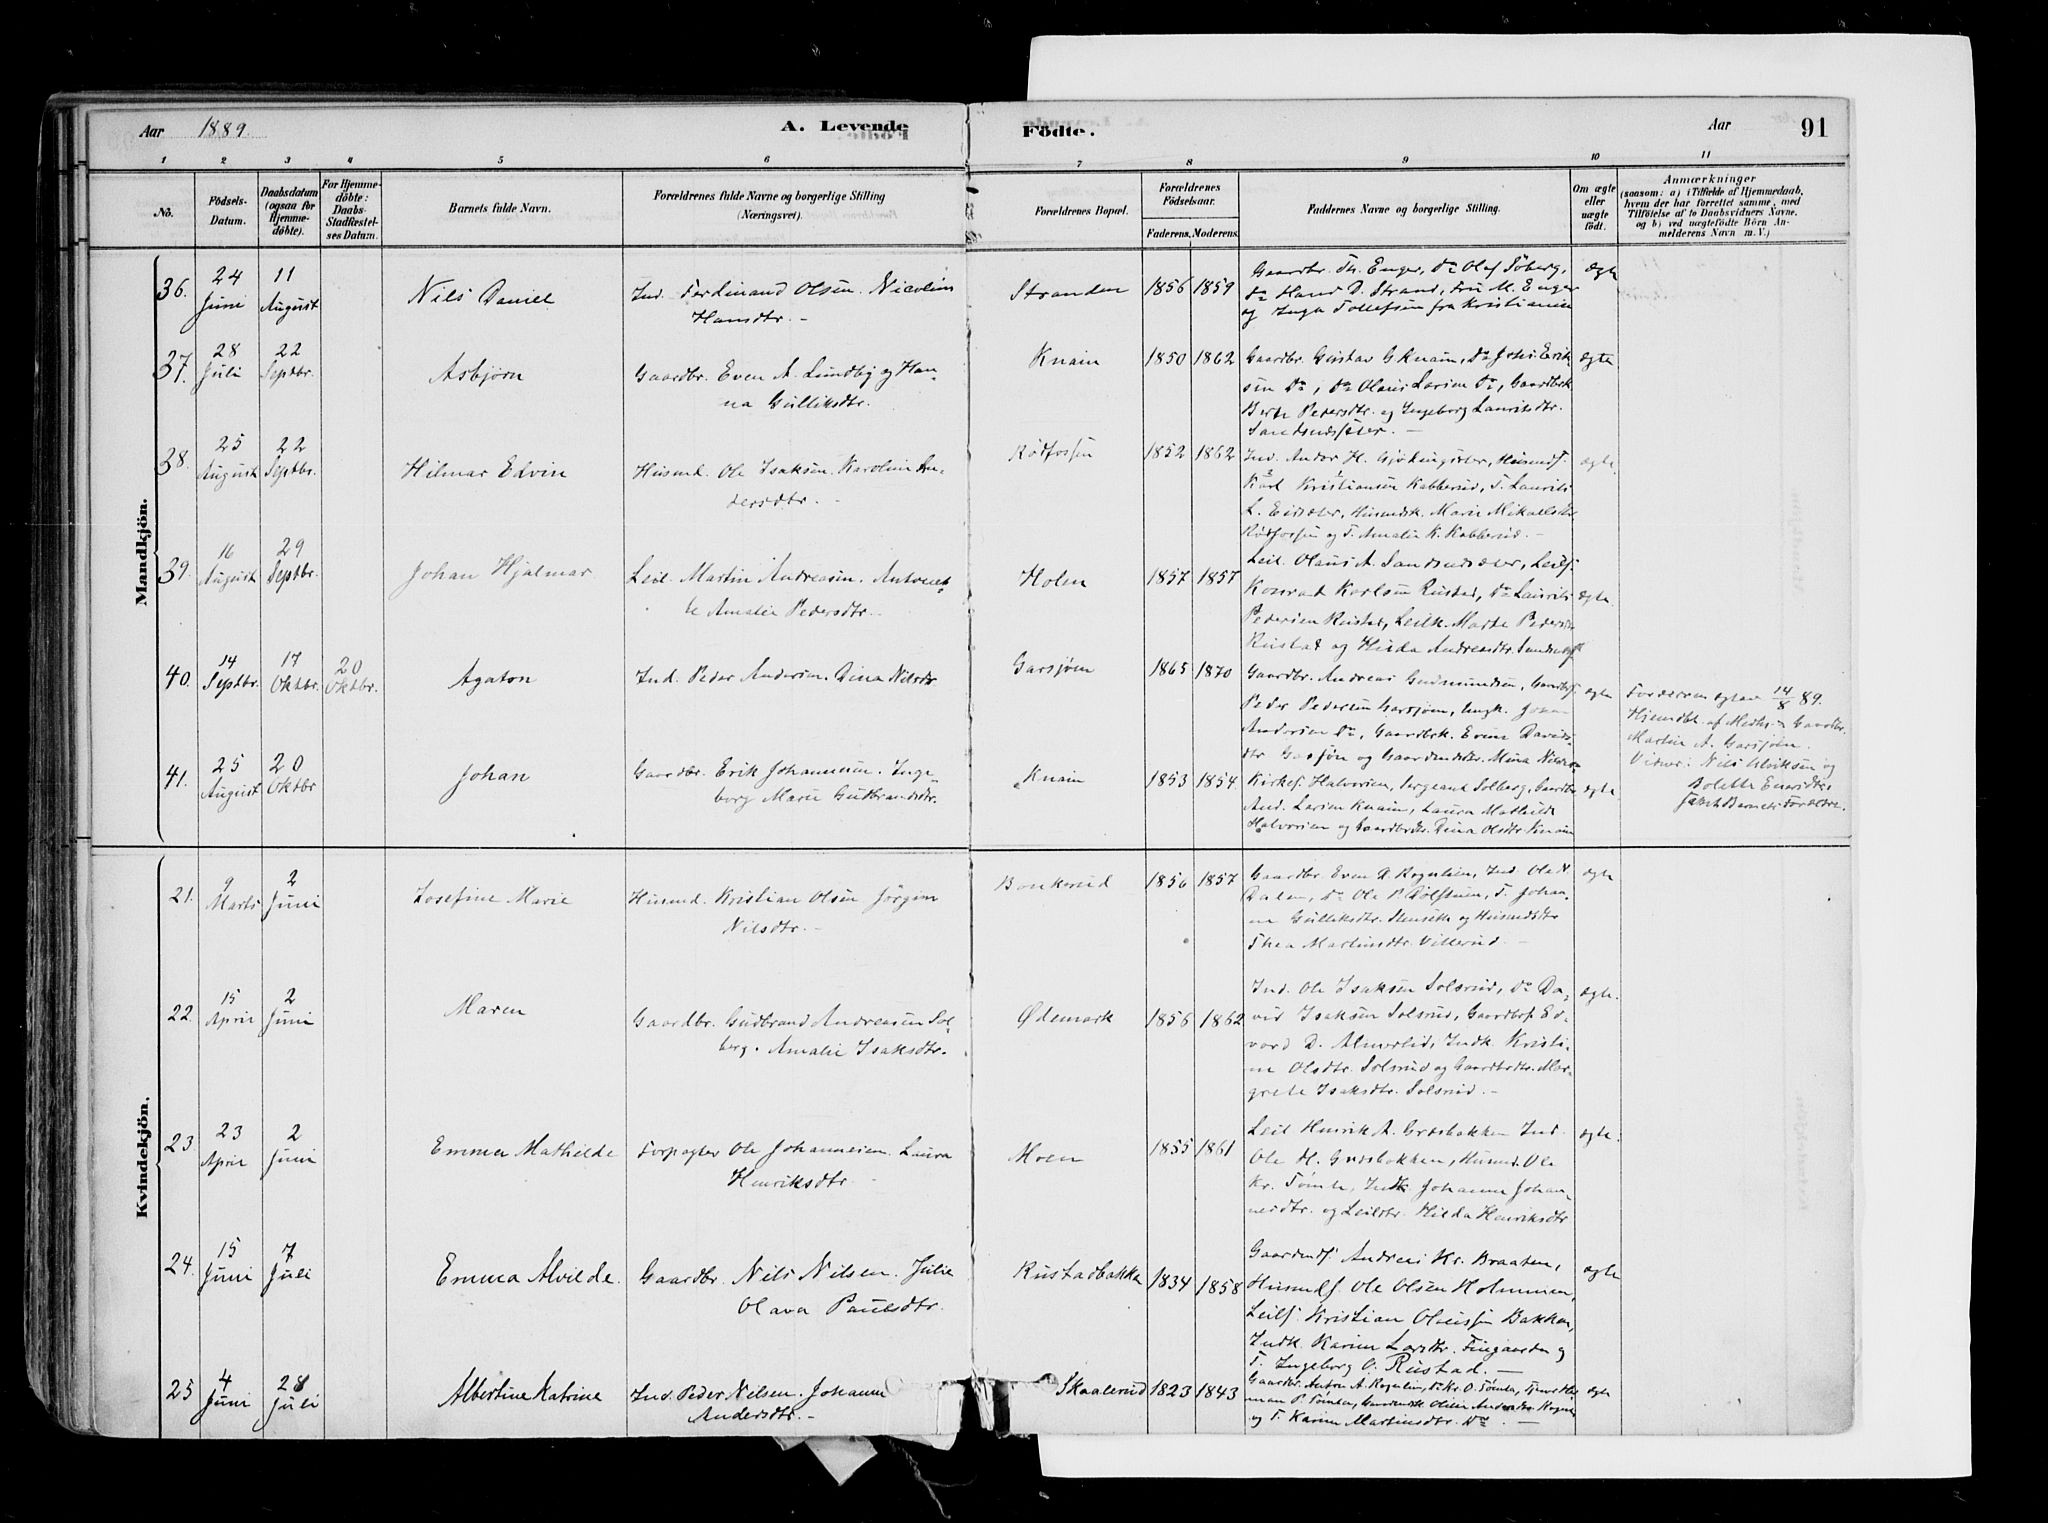 Aar 1889
A. Levende
Födte.
Aar
91
1 2 3 4 5 6 7 8 9 10 11
No.
Födsels-Datum.
Daabsdatum (ogsaa for Hjemme-döbte).
For Hjemme-döbte: Daabs-Stadfæstel-ses Datum.
Barnets fulde Navn.
Forældrenes fulde Navne og borgerlige Stilling (Næringsvei).
Forældrenes Bopæl.
Forældrenes Födselsaar.
Faderens. Moderens.
Faddernes Navne og borgerlige Stilling.
Om ægte eller uægte födt.
Anmærkninger
(saasom: a) i Tilfælde af Hjemmedaab, hvem der har forrettet samme, med Tilföielse af to Daabsvidners Navne, og b) ved uægtefödte Börn An-melderens Navn m. V.)
Mandkjön.
36. 24 Juni 11 August Nils Daniel Ind. Ferdinand Olsen. Nicoline
Hansdtr. -
Stranden 1856 1859 Gaardbr. Th. Enger, Do Olaf Soberg,
Do Hans D. Strand, Fru M. Enger
og Inga Tollefsen fra Kristiania
ægte
37. 28 Juli 22 Septbr. Asbjørn Gaardbr. Even A. Lundby og Han-
na Gulliksdtr.
Knain 1850 1862 Gaardbr. Gustav G. Knain, Do Johs. Erik-
sen Do, Do Olaus Larsen Do, Gaardbrk
Berte Pedersdtr. og Ingeborg Lauritsdtr.
ægte
38. 25 August 22 Septbr. Hilmar Edvin Husmd. Ole Isaksen. Karoline An-
dersdtr. -
Rødfossen 1852 1862
Karl Kristiansen Kabberud, T. Laurits
Rødfossen og T. Amalie K. Kabberud. -
ægte
39. 16 August 29 Septbr. Johan Hjalmar Leil. Martin Andreasen. Antonet-
te Amalie Pedersdtr.
Holen 1857 1857 Leil. Olaus A. Sandsndsæter, Leilf.
Konrad Karlsen Rustad, Do Laurits
Pedersen Rustad, Leilk. Marte Pedersdtr
Rustad og Hilda Andreasdtr.
ægte
40. 14 Septbr. 17 Oktbr. 20 Oktbr. Agaton Ind. Peder Andersen. Dina Nilsdtr
Garsjøen 1865 1870 Gaardbr. Andreas Gudmundsen,
Peder Pedersen Garsjøen, Ungk. Johan
Andersen Do, Gaardbrk. Evine Davids-
dtr Garsjøn og
ægte
Forældrene ægtev. 14/8 89.
Hjemdbt. af Gaardbr.
Martin A. Garsjøen.
Vidner: Nils Ulriksen og
Bolette Enersdtr,
samt Barnets Forældre.
41. 25 August 20 Oktbr Johan Gaardbr. Erik Johannesen. Inge-
borg Marie Gudbrandsdtr.
Knain 1853 1854 Kirkes. Halvorsen, Sergeant Solberg, Gaardbr
And. Larsen Knain, Laura Mathilde
Halvorsen og Gaardbrdtr. Dina Olsdtr. Knain
ægte
Kvindekjön.
21. 9 Marts 2 Juni Josefine Marie Husmd. Kristian Olsen Jørgine
Nilsdtr. -
Bonkerud 1856 1857 Gaardbr. Even A. Rognlien, Ind Ole A
Dalen, Do Ole P. Dølfstuen, T. Johan-
ne Gulliksdtr. Stensike og Husmdsdtr
Thea Martinsdtr. Villerud. -
ægte
22. 15 April 2 Juni Maren Gaardbr. Gudbrand Andreasen Sol-
berg. Amalie Isaksdtr.
Ødemark 1856 1862 Ind. Ole Isaksen Solsrud, Do Da-
vid Isaksen Solsrud, Gaardbrs. Ed-
vard D. Almerlid, Indk. Kristi-
ne Olsdtr. Solsrud og Gaardbrdtr. Mar-
grete Isaksdtr. Solsrud. -
ægte.
23. 23 April 2 Juni Emma Mathilde Forpagter Ole Johannesen. Laura
Henriksdtr
Moen 1855 1861 Leil Henrik A. Græsbakken Ind.
Ole H. Græsbakken, Husmd. Ole
Kr. Tømte, Indk Johanne Johan-
nesdtr. og Leildtr. Hilda Henriksdtr
ægte.
24. 15 Juni 7 Juli Emma Alvilde. Gaardbr. Nils Nilsen. Julie
Olava Paulsdtr.
Rustadbakke 1834 1858 Gaardmdf. Andreas Kr. Braaten,
Husmdf. Ole Olsen Holmmen,
Leilf. Kristian Olaussen Bakken,
Indk. Karen Larsdtr. Fingaarden og
T. Ingeborg O. Rustad. -
ægte
25 4 Juni 28 Juli Albertine Katrine Ind. Peder Nilsen. Johanne
Andersdtr. -
Skaalerud 1823 1843 Gaardbr. Anton A. Rognlien, Do Kr. O. Tømte,
og T. Karen Martinsdtr. Do. -
ægte